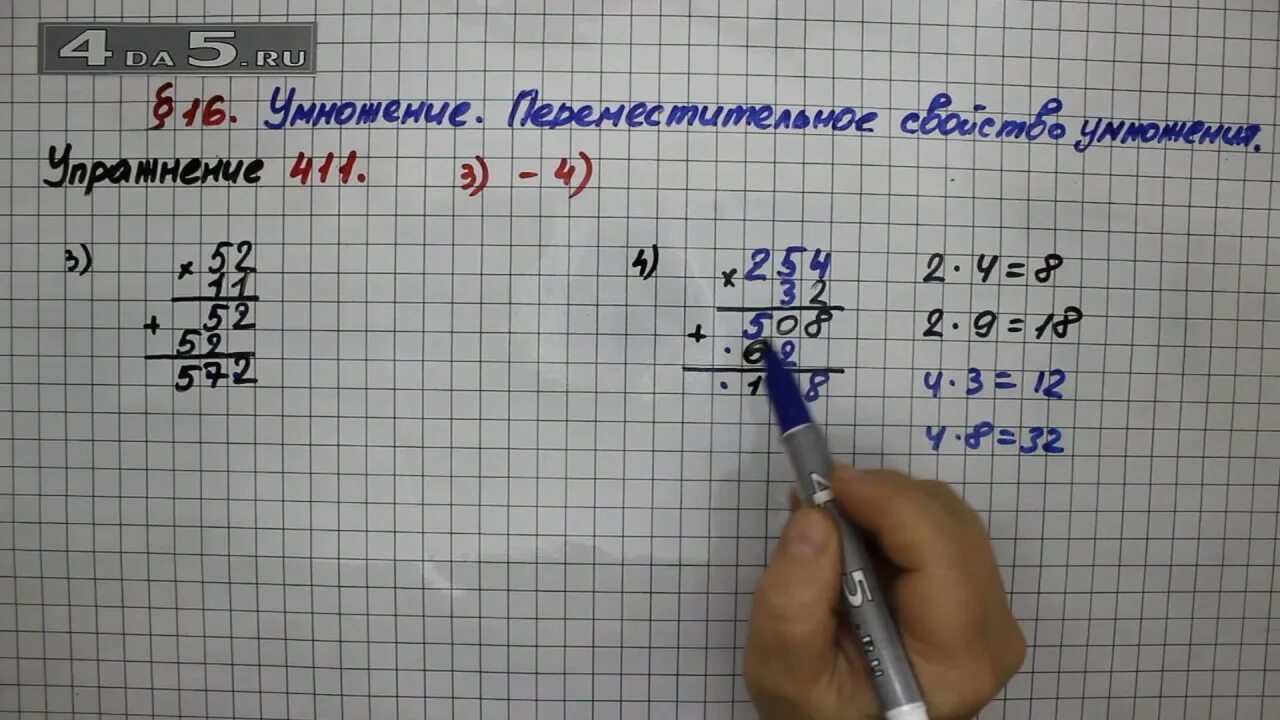 4DA5.RU
§ 16. Умножение. Переместительное свойство умножения.
Упражнение 411. 3) - 4)
3)
× 52
11
+ 52
52
572
4)
× 254
32
+ 508
· 62
· 1 8
2 · 4 = 8
2 · 9 = 18
4 · 3 = 12
4 · 8 = 32
4
5